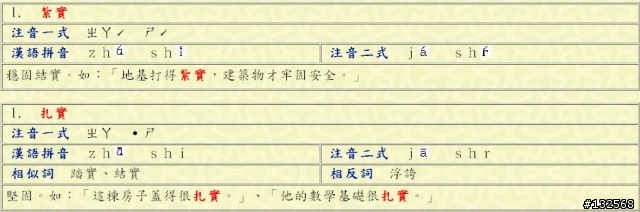 1. 紮實
注音一式 ㄓㄚˊ ㄕˊ
漢語拼音 zhá shí 注音二式 já shŕ
穩固結實。如：「地基打得紮實，建築物才牢固安全。」
1. 扎實
注音一式 ㄓㄚ •ㄕ
漢語拼音 zhā shi 注音二式 jā shr
相似詞 踏實、結實 相反詞 浮誇
堅固。如：「這棟房子蓋得很扎實。」、「他的數學基礎很扎實。」
#132568